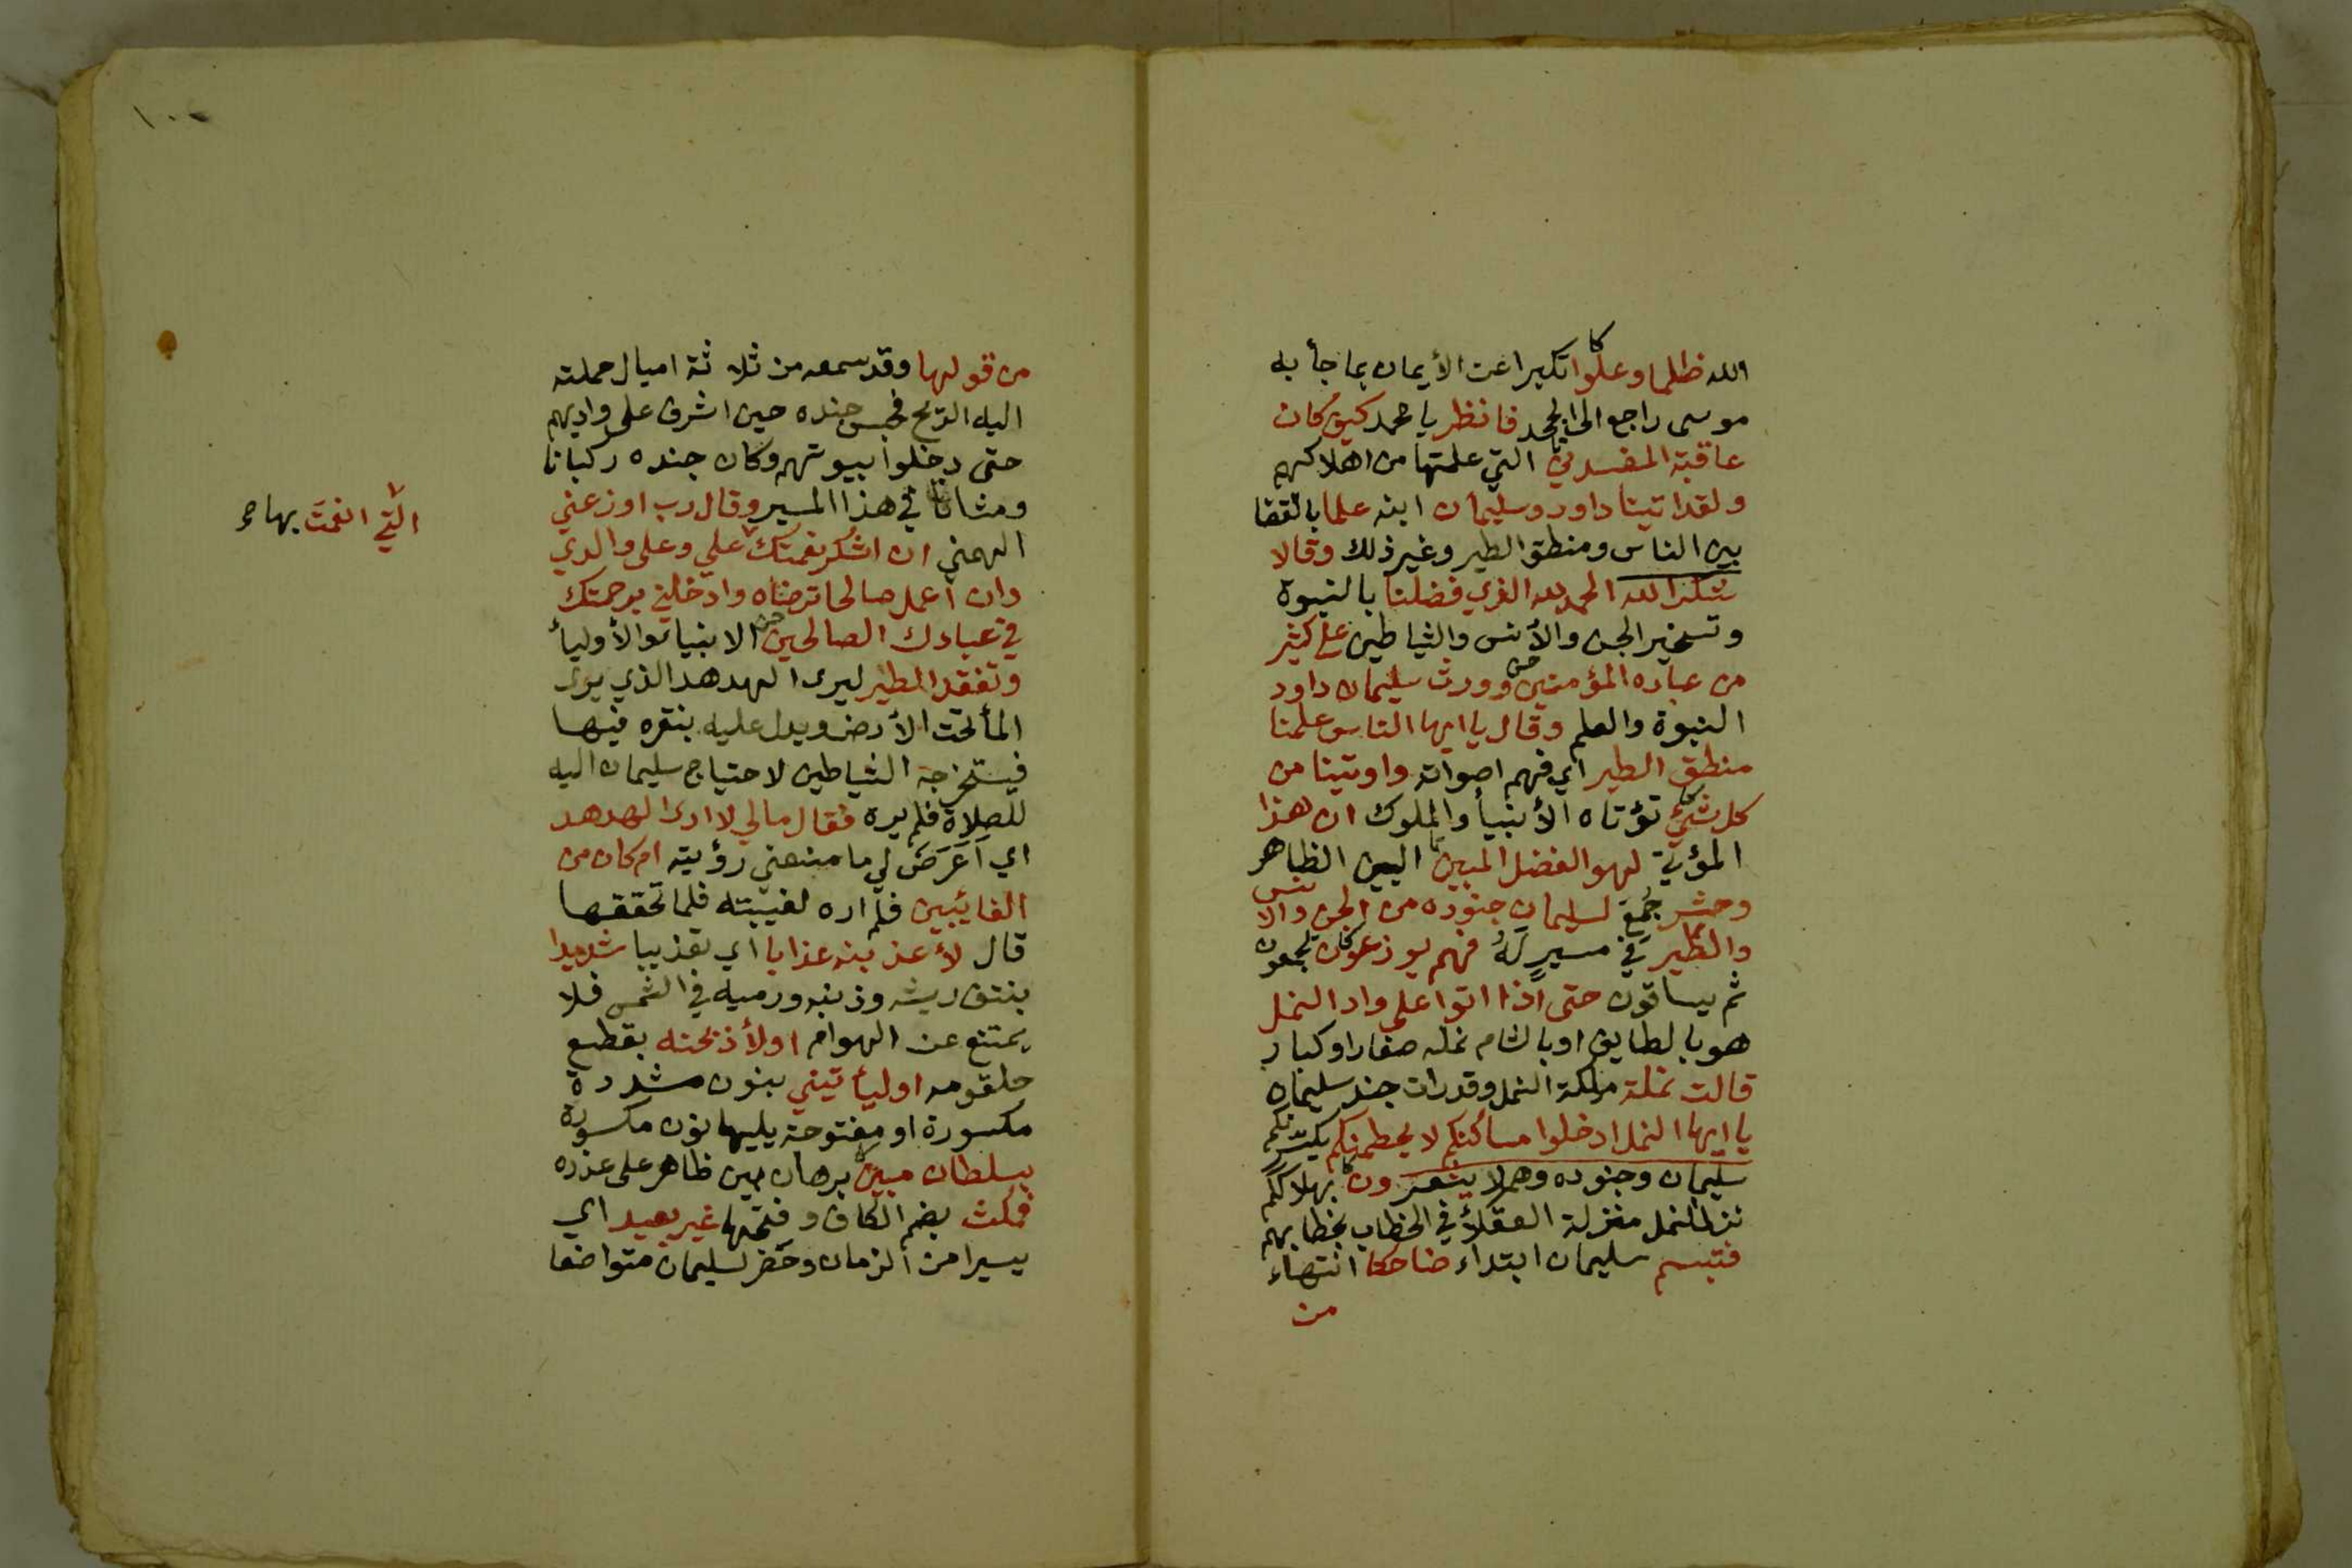 الله ظلما وعلوا تكبرا عن الأيمان بما جأ به
موسى راجع الى الجحد فانظر يا محمد كيف كان
عاقبة المفسدين التي علمتها من اهلاكهم
ولقد اتينا داود وسليمان ابنه علما بالقضا
بين الناس ومنطق الطير وغير ذلك وقالا
شكرا لله الحمد لله الذي فضلنا بالنبوة
وتسخير الجن والأنس والشياطين على كثير
من عباده المؤمنين وورث سليمان داود
النبوة والعلم وقال يا ايها الناس علمنا
منطق الطير اي فهم اصواته واوتينا من
كل شيئ تؤتاه الأنبيأ والملوك ان هذا
المؤتى لهو الفضل المبين البين الظاهر
وحشر جُمع لسليمان جنوده من الجن والانس
والطير في مسيرٍ له فهم يوزعون يجمعون
ثم يساقون حتى اذا اتوا على واد النمل
هو بالطايف او بالشام نمله صغارا وكبار
قالت نملة ملكة النمل وقد رات جند سليمان
يا ايها النمل ادخلوا مساكنكم لا يحطمنكم يكسرنكم
سليمان وجنوده وهم لا يشعرون بهلاككم
نزل النمل منزلة العقلأ في الخطاب بخطابهم
فتبسم سليمان ابتداء ضاحكا انتهاء
من
١٠٢
من قولها وقد سمعه من ثلاثة اميال حملته
اليه الريح فحبس جنده حين اشرف على واديهم
حتى دخلوا بيوتهم وكان جنده ركبانا
ومشاتا في هذا المسير وقال رب اوزعني
الهمني ان اشكر نعمتك علي وعلى والدي
التي انعمتَ بها
وان اعمل صالحا ترضاه وادخلني برحمتك
في عبادك الصالحين الانبيا والأوليأ
وتفقد الطير ليرى الهدهد الذي يرى
المأ تحت الأرض ويدل عليه بنقره فيها
فيستخرجه الشياطين لاحتياج سليمان اليه
للصلاة فلم يره فقال مالي لا ارى الهدهد
اي اَعَرَضَ لي ما منعني رؤيته ام كان من
الغايبين فلم اره لغيبته فلما تحققها
قال لأعذبنه عذابا اي تعذيبا شديدا
بنتف ريشه وذنبه ورميه في الشمس فلا
يمتنع عن الهوام او لأذبحنه بقطع
حلقومه او ليأتيني بنون مشددة
مكسورة او مفتوحة يليها نون مكسورة
بسلطان مبين برهان بين ظاهر على عذره
فمكث بضم الكاف وفتحها غير بعيد اي
يسيرا من الزمان وحضر لسليمان متواضعا